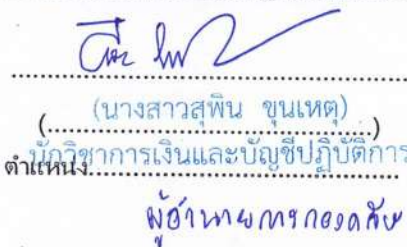 (นางสาวสุพิน ขุนเหตุ)
ตำแหน่ง นักวิชาการเงินและบัญชีปฏิบัติการ
ผู้อำนวยการกองคลัง